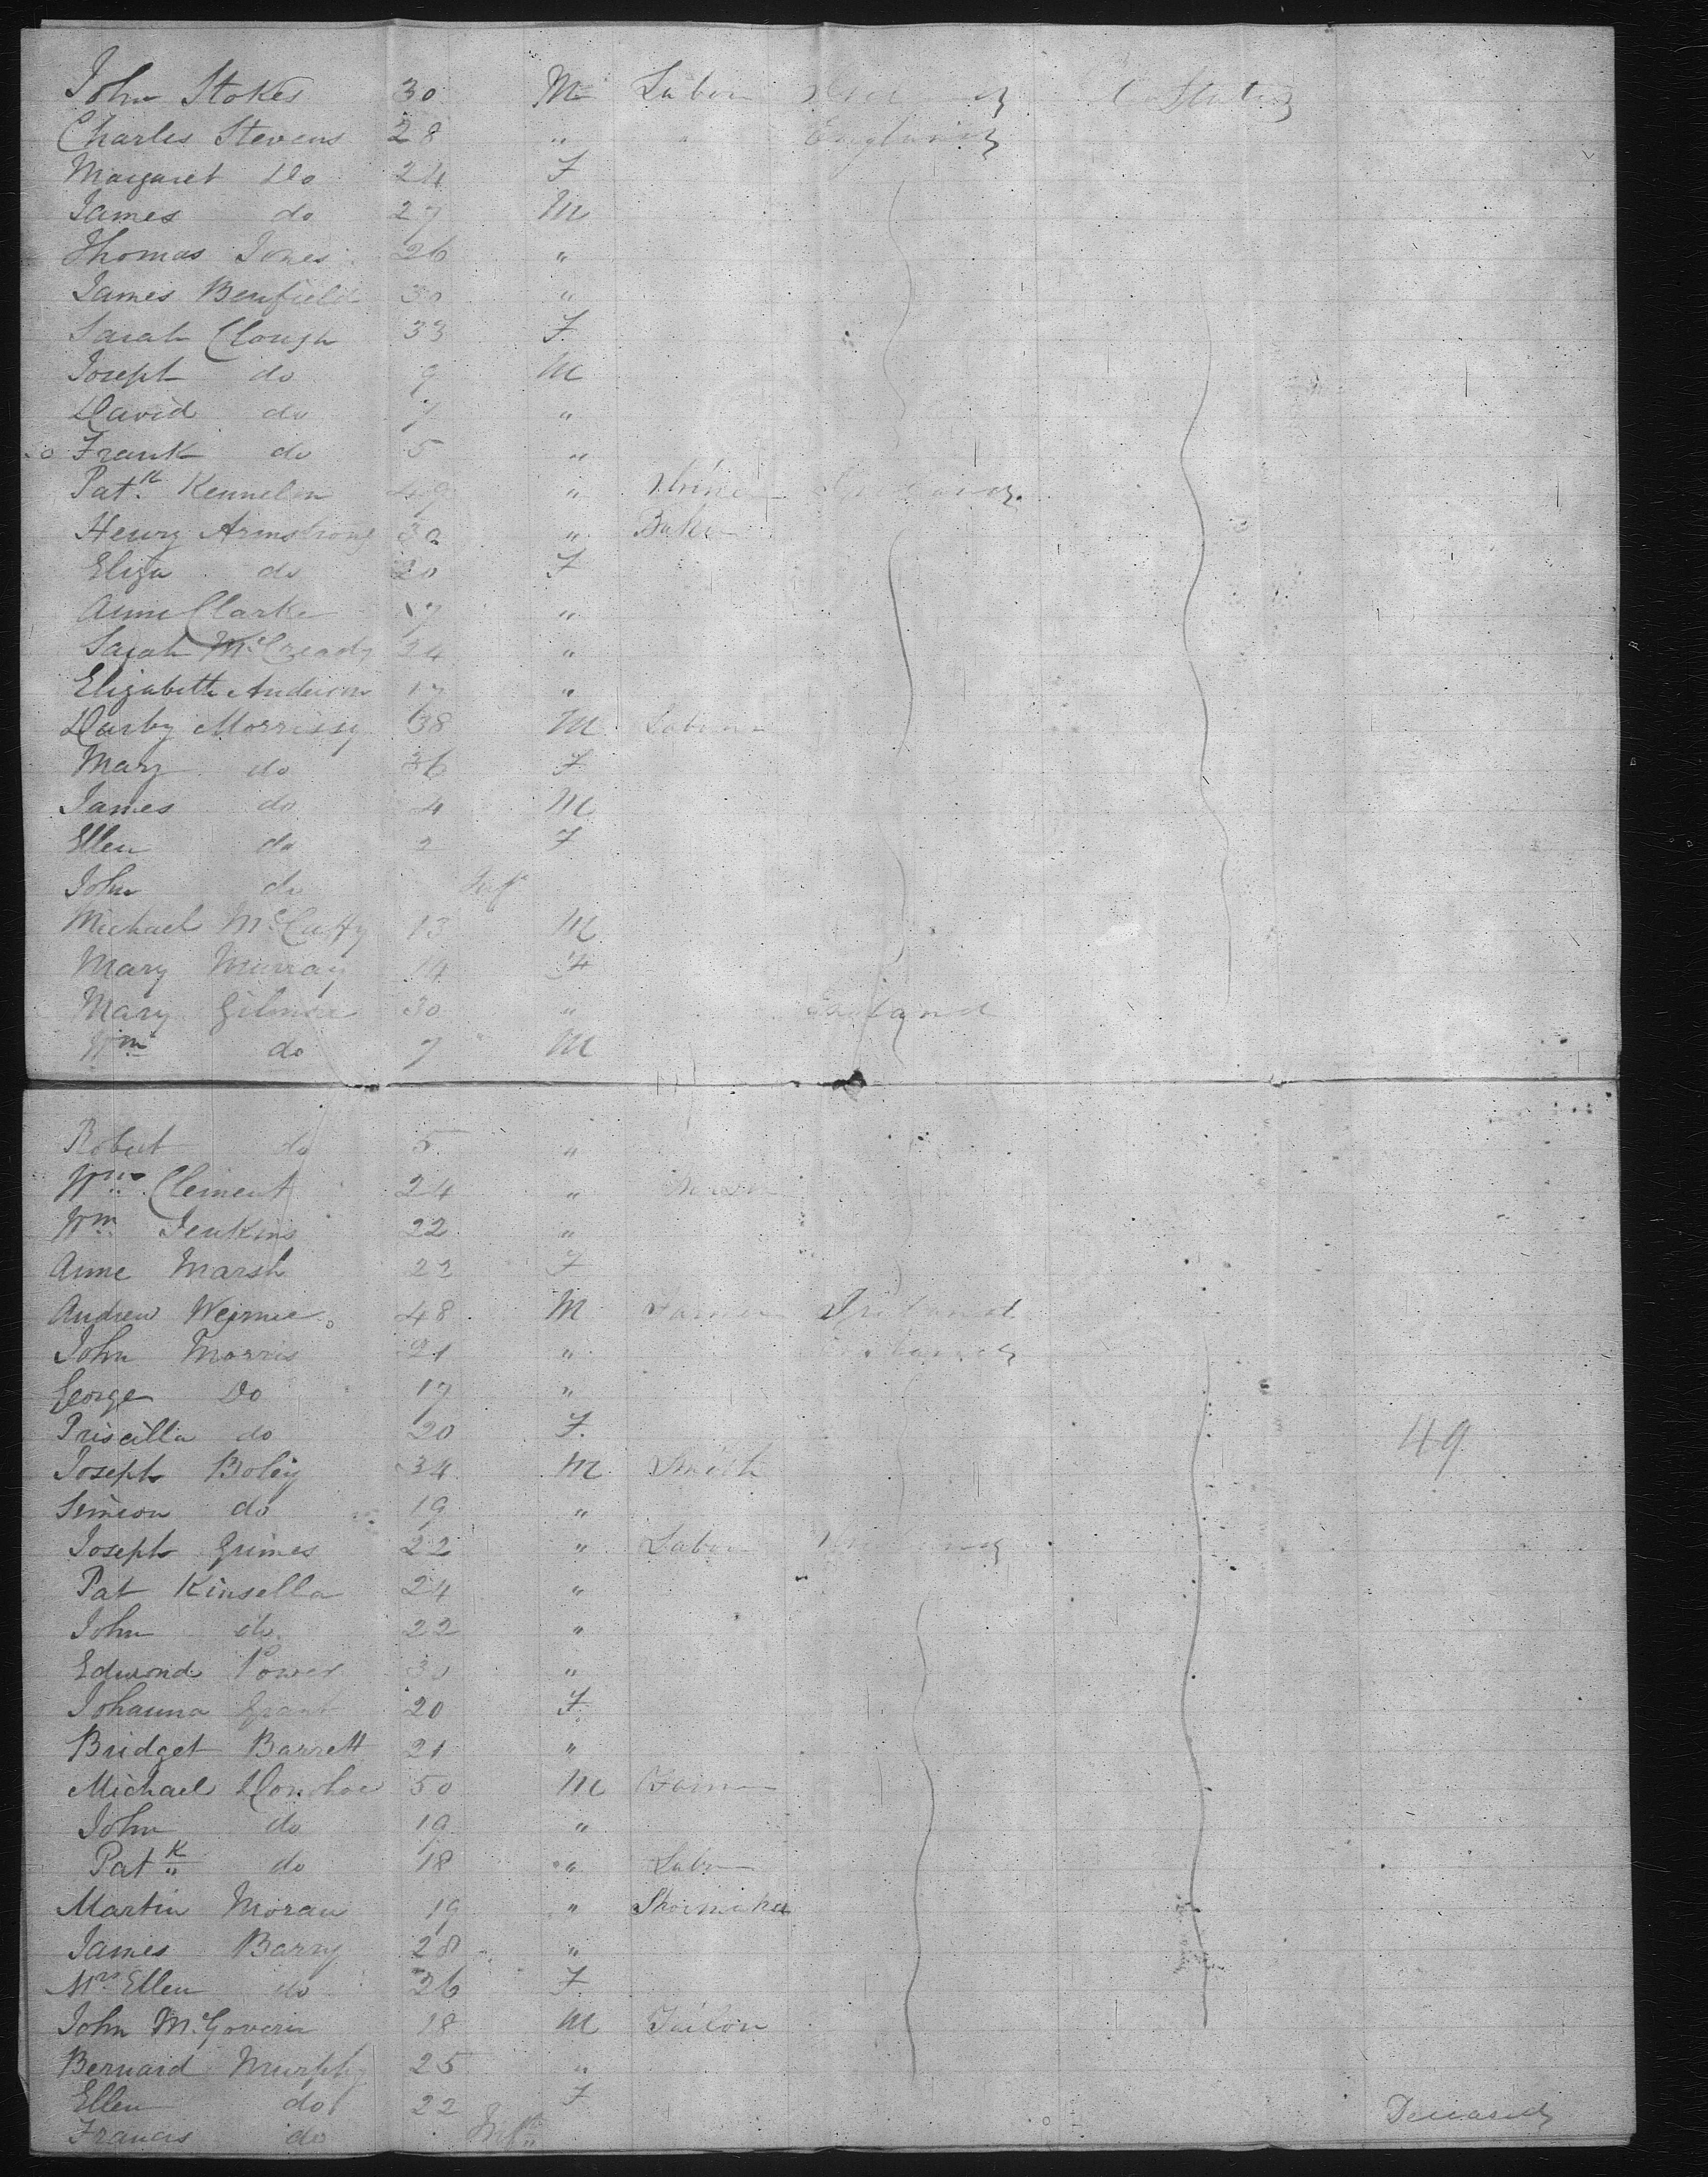 John Stokes 30 M Labour U States
Charles Stevens 28 " " England
Margaret Do 24 F
James do 27 M
Thomas Jones 26 "
James Benfield 30 "
Sarah Clough 33 F
Joseph do 9 M
David do 7 "
Frank do 5 "
Patk "
Henry Armstrong 30 " Baker
Eliza do 20 F
Anne Clarke 17 "
Sarah McCready 24 "
Elizabeth Anderson 17 "
Darby Morrissy 38 M Labour
Mary do 36 F
James do 4 M
Ellen do 2 F
John do Inft
Michael McCaffy 13 M
Mary Murray 14 F
Mary Gilmore 30 " England
Wm do 7 M
Robert do 5 "
Wm Clement 24 "
Wm Jenkins 22 "
Anne Marsh 22 F
Andrew 48 M Farmer Ireland
John Morris 21 " England
George Do 17 "
Priscilla do 20 F
49
Joseph Boley 34 M Smith
Simeon do 19 "
Joseph Grimes 22 " Labour Ireland
Pat Kinsella 24 "
John do 22 "
Edmond Power 30 "
Johanna Grant 20 F
Bridget Barrett 21 "
Michael Donohoe 50 M Farmer
John do 19 "
Patk do 18 " Labr
Martin Moran 19 " Shoemaker
James Barry 28 "
Mrs Ellen do 26 F
John McGovern 18 M Tailor
Bernard Murphy 25 "
Ellen do 22 F
Francis do Inft